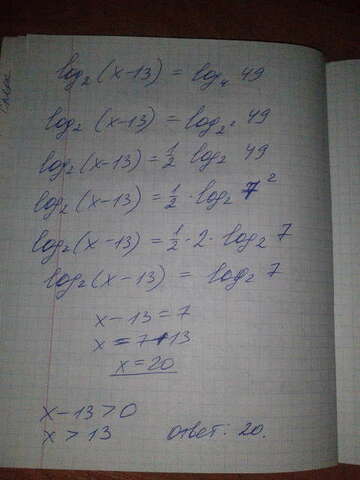 log₂ (x−13) = log₄ 49
log₂ (x−13) = log₂² 49
log₂(x−13) = ½ log₂ 49
log₂(x−13) = ½ · log₂ 7²
log₂(x−13) = ½ · 2 · log₂ 7
log₂(x−13) = log₂ 7
x−13 = 7
x = 7+13
x = 20
x−13 > 0
x > 13 ответ: 20.